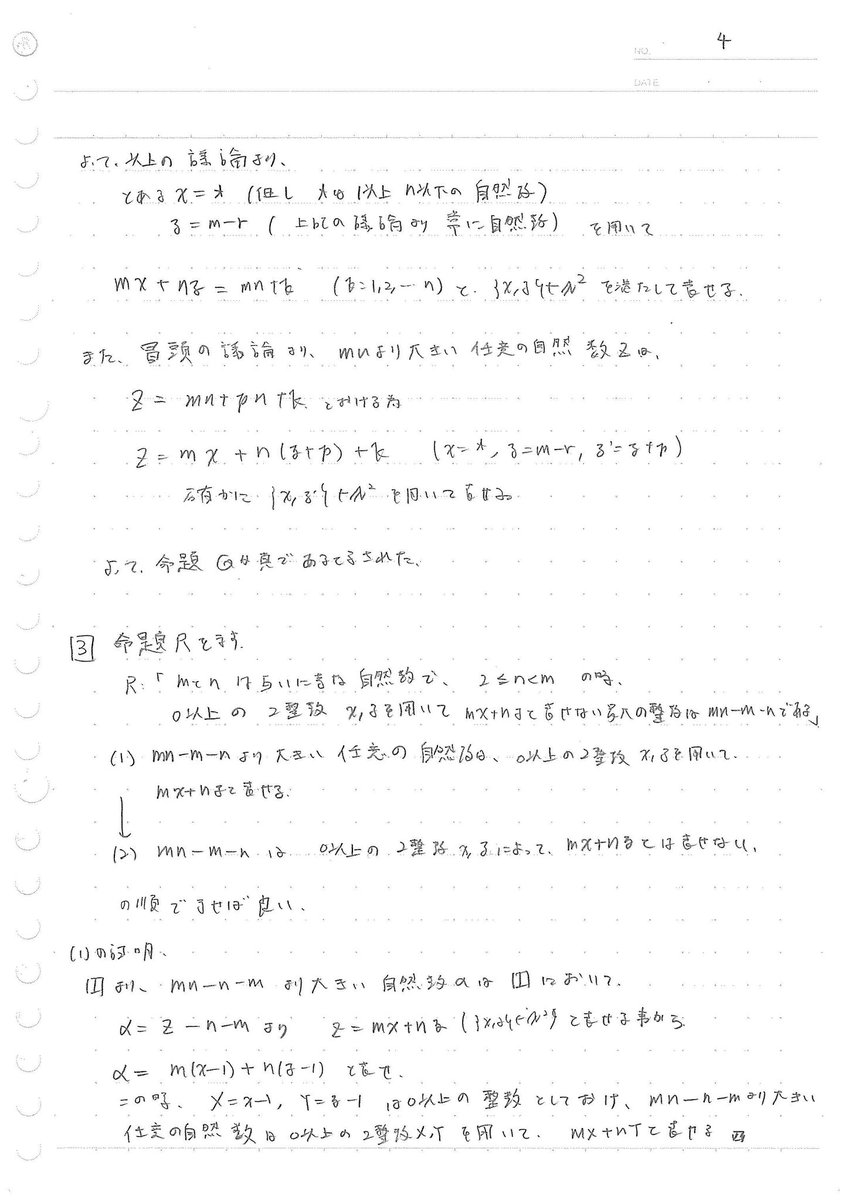 NO. 4
DATE
よって、以上の議論より、
とある x=t (但し tは1以上n以下の自然数)
y=m-r (上記の議論より常に自然数) を用いて
mx+ny=mn+k (k=1,2,…n) と、{x,y}∈N² を満たして表せる.
また、冒頭の議論より、mnより大きい任意の自然数Zは、
Z=mn+pn+k とおける為
Z=mx+n(y+p)+k (x=t, y=m-r, y'=y+p)
確かに {x,y'}∈N² を用いて表せる
よって、命題Qは真であると示された.
3 命題Rを示す.
R:「mとnは互いに素な自然数で、2≤n<m の時、
0以上の2整数x,yを用いてmx+nyと表せない最大の整数はmn-m-nである」
(1) mn-m-nより大きい任意の自然数は、0以上の2整数x,yを用いて.
mx+nyと表せる.
↓
(2) mn-m-nは 0以上の2整数x,yによって、mx+nyとは表せない、
の順で示せば良い.
(1)の証明、
より、mn-n-mより大きい自然数αは において.
α=Z-n-mより Z=mx+ny ({x,y}∈N²) と表せる事から
α=m(x-1)+n(y-1) と表せ.
この時、X=x-1, Y=y-1 は0以上の整数としておけ、mn-n-mより大きい
任意の自然数は0以上の2整数X,Yを用いて. mX+nYと表せる